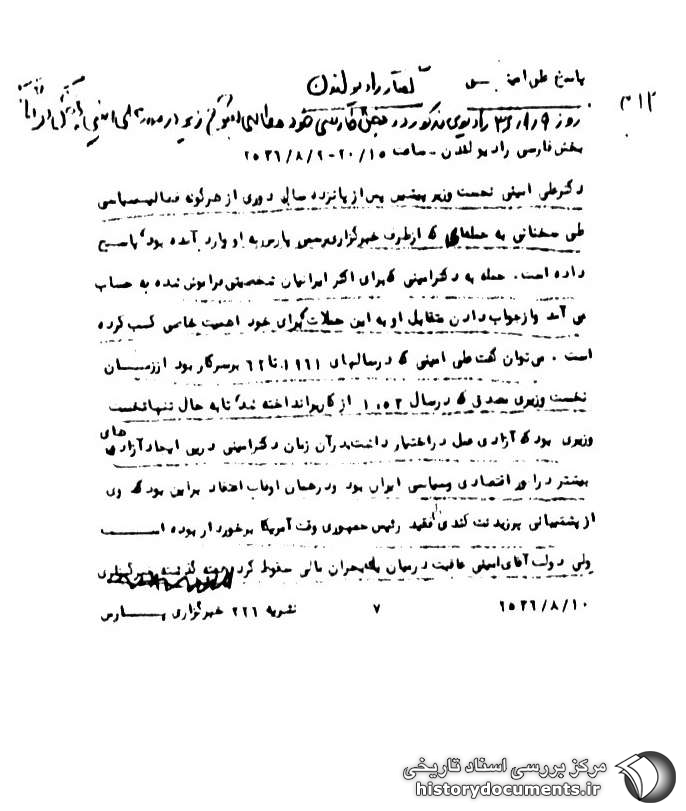 پاسخ علی امینی
گفتار رادیو لندن
۳۱۲
روز ۳۶/۸/۹ رادیوی مذکور در بخش فارسی خود مطالبی بشرح زیر درباره علی امینی
بخش فارسی رادیو لندن - ساعت ۲۰/۱۵ - ۲۵۳۶/۸/۹
دکتر علی امینی نخست وزیر پیشین پس از پانزده سال دوری از هرگونه فعالیت سیاسی
طی سخنانی به حمله‌ای که از طرف خبرگزاری رسمی پارس به او وارد آمده بود، پاسخ
داده است. حمله به دکتر امینی که برای اکثر ایرانیان شخصیتی فراموش شده به حساب
می آمد و از جواب دادن متقابل او به این حملات که برای خود اهمیت خاصی کسب کرده
است. می‌توان گفت علی امینی که در سالهای ۱۹۶۱ تا ۶۲ بر سر کار بود از زمان
نخست وزیری مصدق که در سال ۱۹۵۳ از کار برانداخته شد، تا به حال تنها نخست
وزیری بود که آزادی عمل در اختیار داشت در آن زمان دکتر امینی در پی ایجاد آزادی های
بیشتر در امور اقتصادی و سیاسی ایران بود و در همان اوقات اعتقاد بر این بود که وی
از پشتیبانی پرزیدنت کندی فقید رئیس جمهوری وقت آمریکا برخوردار بوده است
ولی دولت آقای امینی عاقبت در میان یک بحران مالی سقوط کرد. هفته گذشته خبرگزاری
۲۵۳۶/۸/۱۰ ۷ نشریه ۲۲۶ خبرگزاری پارس
مرکز بررسی اسناد تاریخی
historydocuments.ir